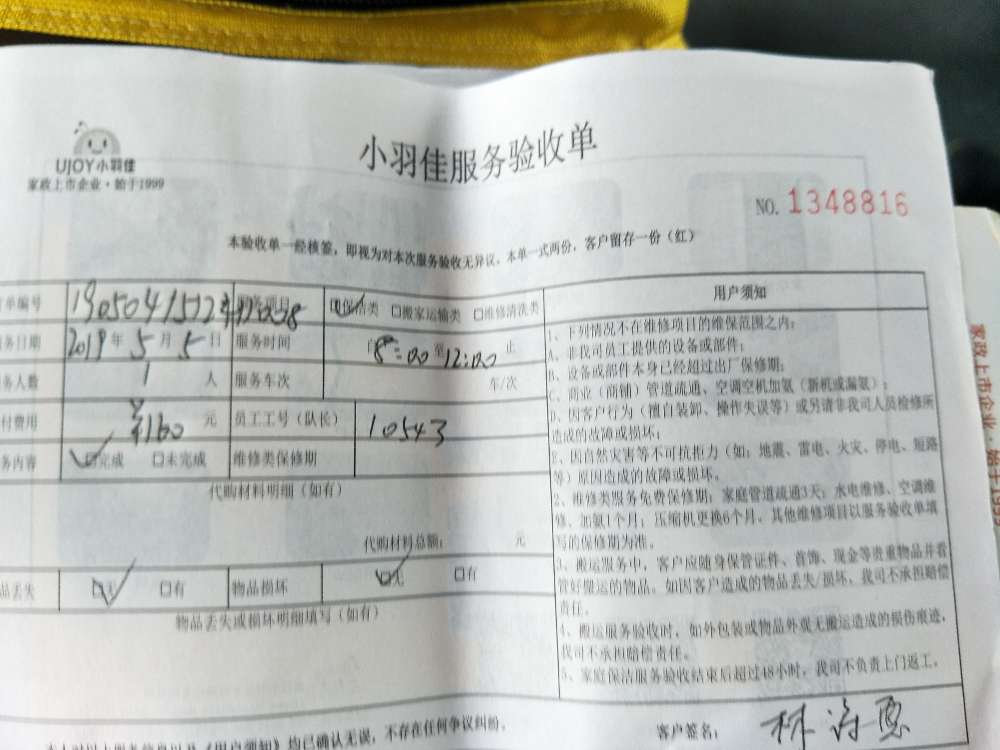 UJOY小羽佳
家政上市企业·始于1999
小羽佳服务验收单
NO. 1348816
本验收单一经核签，即视为对本次服务验收无异议。本单一式两份，客户留存一份（红）
单编号 服务项目 保洁类 搬家运输类 维修清洗类
务日期 2019年5月5日 服务时间 自8:00至12:00止
务人数 1人 服务车次 车/次
付费用 ¥160元 员工工号（队长） 10543
务内容 完成 未完成 维修类保修期
代购材料明细（如有）
代购材料总额： 元
品丢失 无 有 物品损坏 无 有
物品丢失或损坏明细填写（如有）
用户须知
1、下列情况不在维修项目的维保范围之内：
A、非我司员工提供的设备或部件；
B、设备或部件本身已经超过出厂保修期；
C、商业（商铺）管道疏通、空调空机加氨（新机或漏氨）；
D、因客户行为（擅自装卸、操作失误等）或另请非我司人员检修所
造成的故障或损坏；
E、因自然灾害等不可抗拒力（如：地震、雷电、火灾、停电、短路
等）原因造成的故障或损坏。
2、维修类服务免费保修期：家庭管道疏通3天；水电维修、空调维
修、加氨1个月；压缩机更换6个月。其他维修项目以服务验收单填
写的保修期为准。
3、搬运服务中，客户应随身保管证件、首饰、现金等贵重物品并看
管好搬运的物品。如因客户造成的物品丢失/损坏，我司不承担赔偿
责任。
4、搬运服务验收时，如外包装或物品外观无搬运造成的损伤痕迹，
我司不承担赔偿责任。
5、家庭保洁服务验收结束后超过48小时，我司不负责上门返工。
《用户须知》均已确认无误，不存在任何争议纠纷。
客户签名：
家政上市企业·始于199